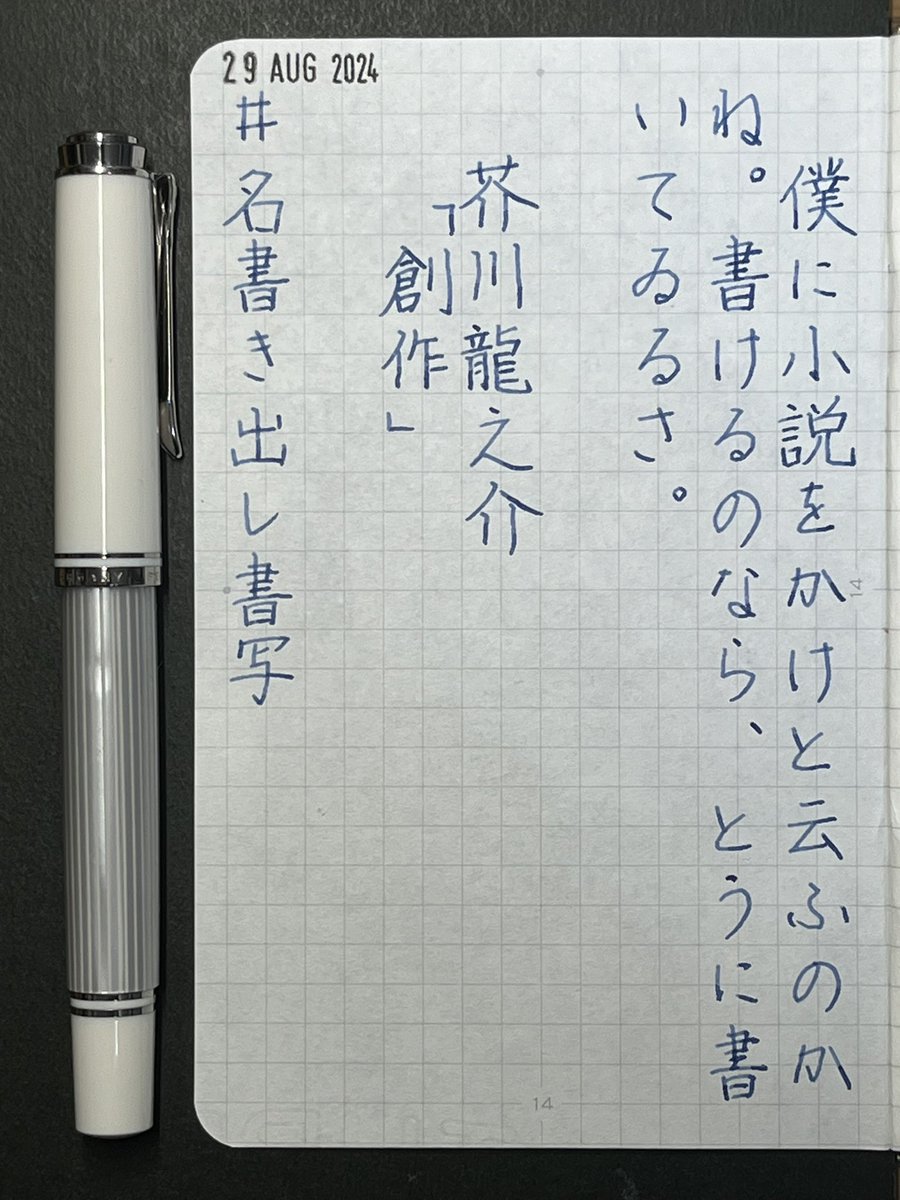 29 AUG 2024
僕に小説をかけと云ふのか
ね。書けるのなら、とうに書
いてゐるさ。
芥川龍之介
「創作」
#名書き出し書写
14
14